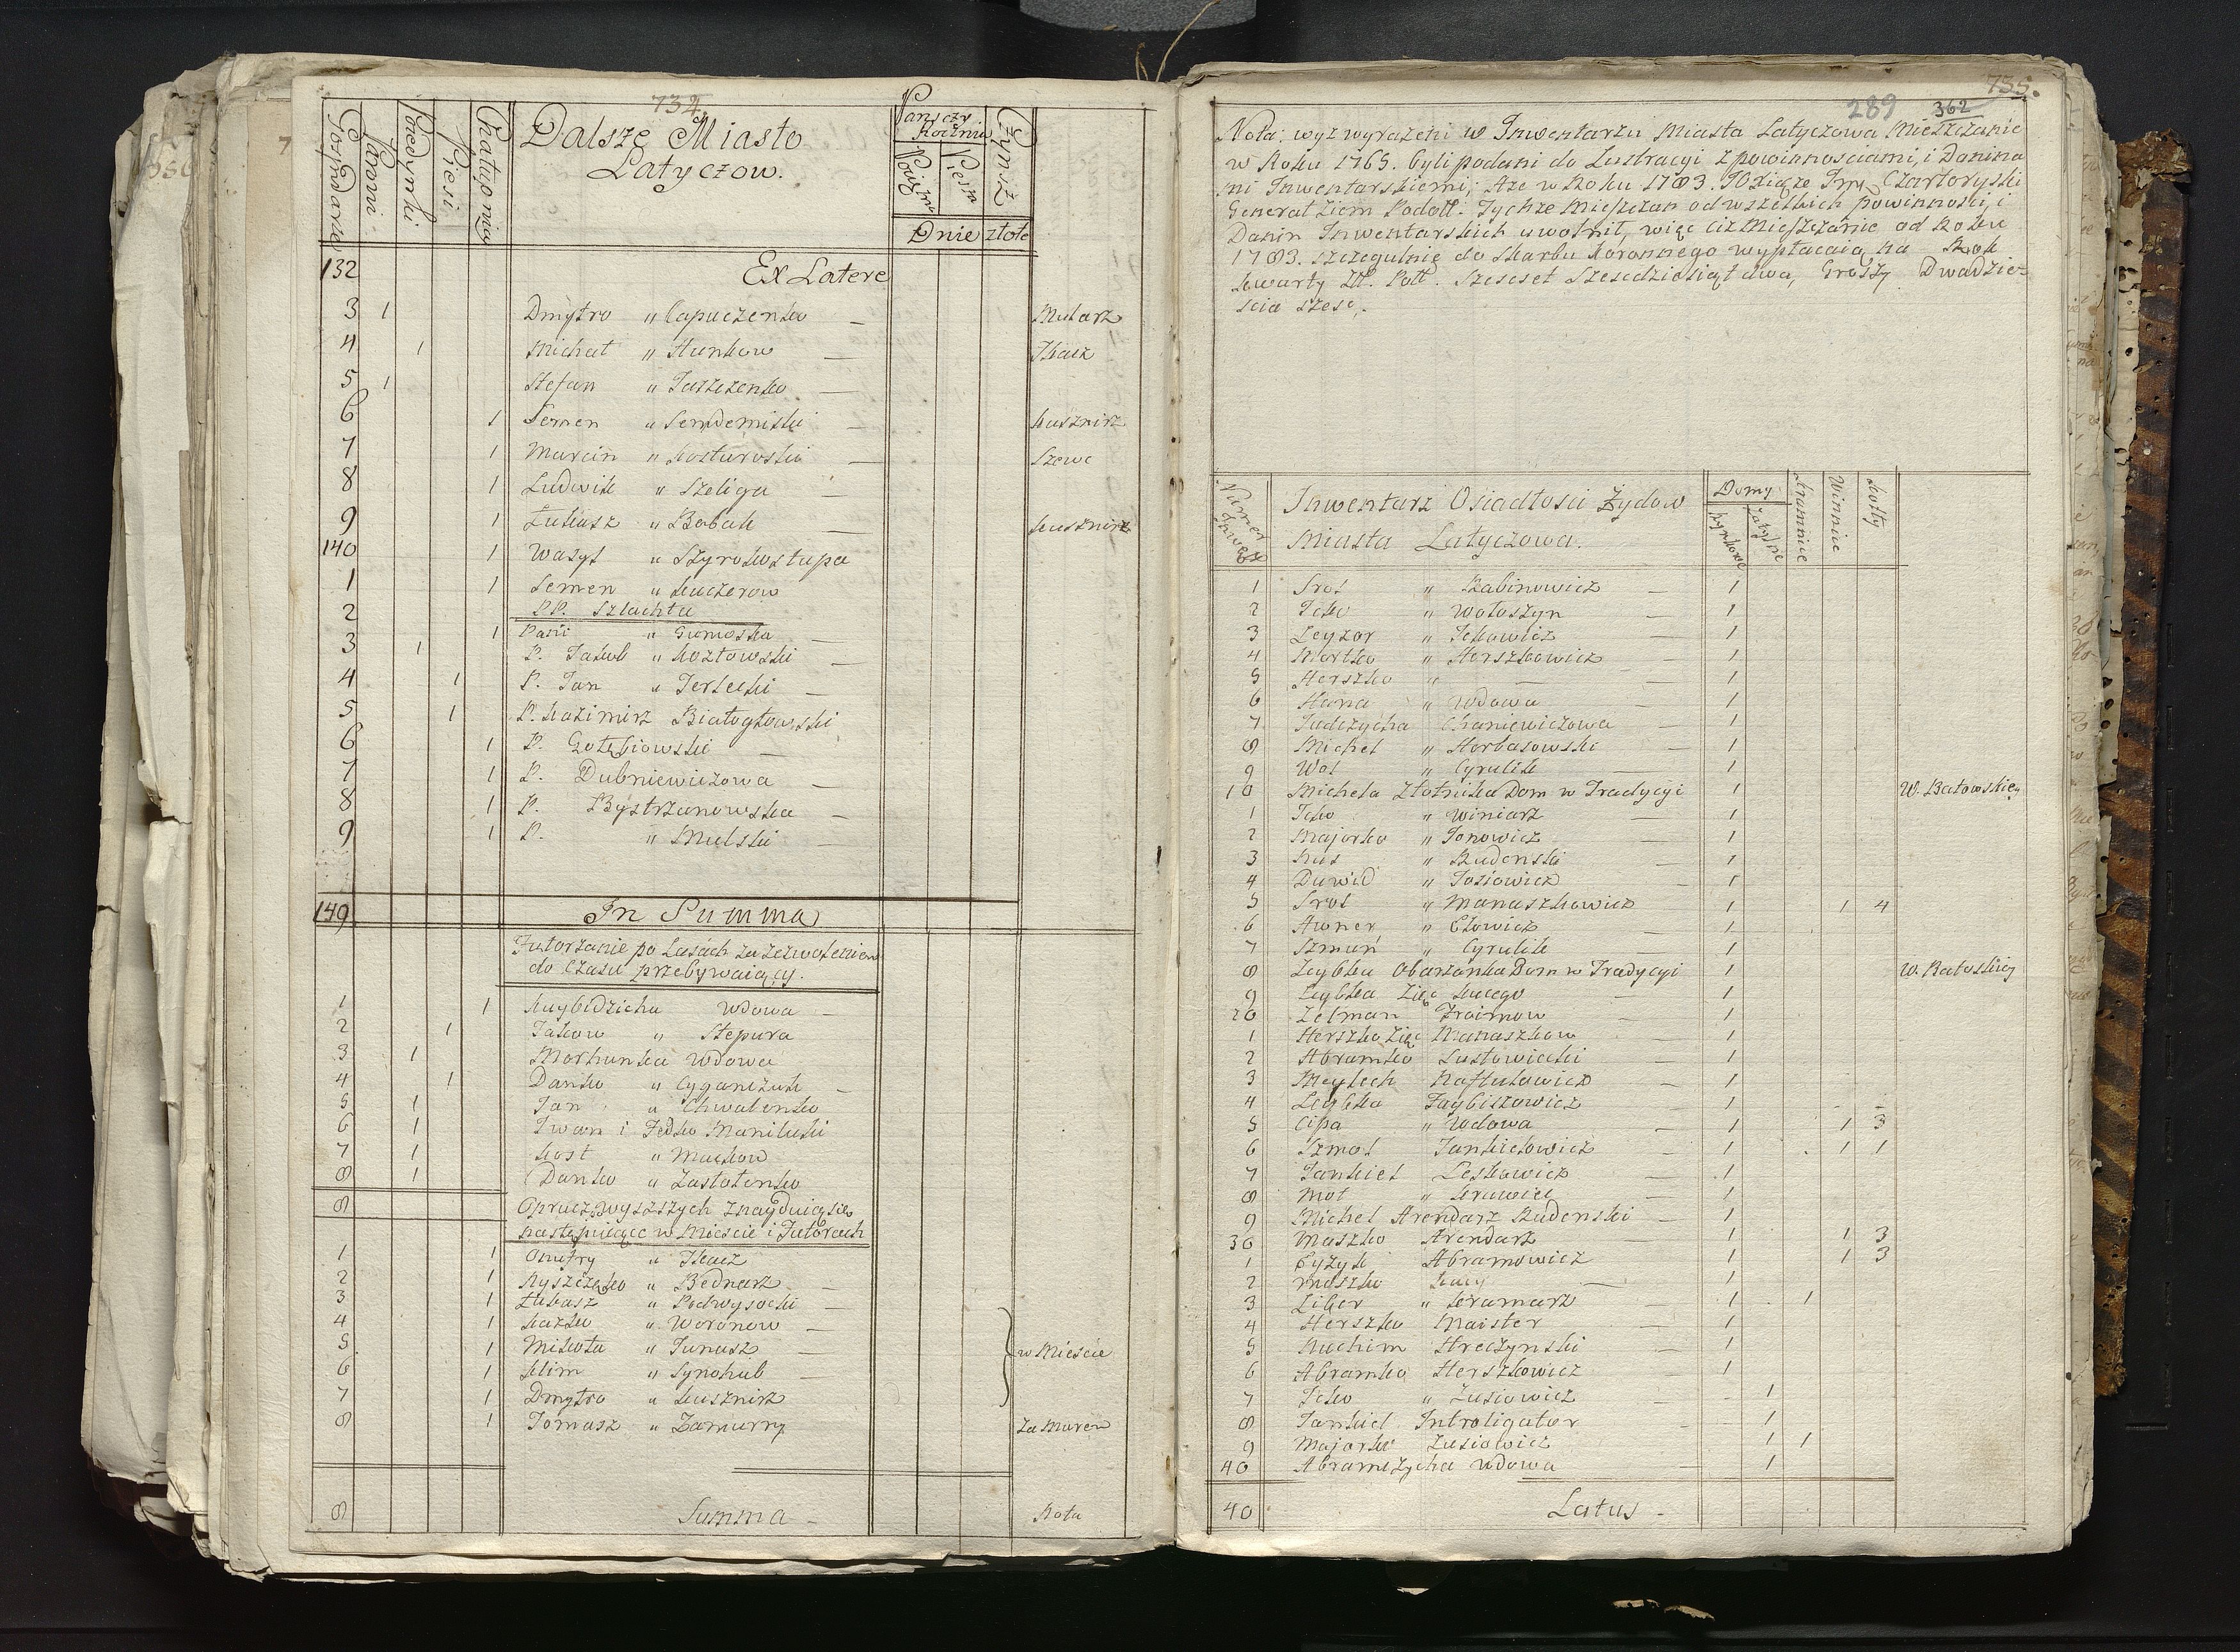 734.
Gospodarze
Parowi
Poiedynki
Piesi
Chałupnicy
Dalsze Miasto
Latyczow.
Pansczy
Roczna
Czynsz
Dnie złote
132 Ex Latere
3 1 Dmytro " Capuczenko — Mularz
4 1 Michał " Hunkow — Tkacz
5 1 Stefan " Juszczenko —
6 1 Semen " Sendemiski — kusznirz
7 1 Marcin " Kosturoski — Szewc
8 1 Ludwik " Szeliga —
9 1 Łukasz " Babak — kusznirz
140 1 Wasyl " Szyrokostupa
1 1 Semen " Kuczerow
2 PP. Szlachta
1 Pani " Gumoska —
3 1 P. Jakub " Kozłowski —
4 1 P. Jan " Terlecki —
5 1 P. Kazimirz Białogłowski
6 1 P. Gołębiowski —
7 1 P. Dubniewiczowa —
8 1 P. Bystrzanowska —
9 1 P. " Skulski —
149 In Summa
Futorzanie po Lasách za zezwoleniem
do Czasu przebywaiący.
1 1 Wdowa —
2 1 Jakow " Stepura
3 1 Morhunka Wdowa
4 1 Danko " Cyganczuk —
5 1 Jan " Chwalenko
6 1 Iwan i Fedko Maniluki
7 1 Kost " Maćkow
8 1 Danko " Zastołenko
8 Oprucz wyższych znayduią się
następuiące w Mieście i Futorach
1 1 Onufry " Tkacz
2 1 Ryszczenko " Bednarz —
3 1 Łukasz " Podwysocki —
4 1 Kazko " Woronow —
5 1 Mikoła " Junasz — w Mieście
6 1 Klim " Synohub —
7 1 Dmytro " kusznirz
8 1 Tomasz " Zamurny za Murem
8 Summa — Nota
735.
289 362
Nota: wyż wyrażeni w Inwentarzu Miasta Latyczowa Mieszczanie
w Roku 1765. byli podani do Lustracyi z powinnościami, i Danina
mi Inwentarskiemi; Aże w Roku 1783. JOXiąże Jmć Czartoryski
Generał Ziem Podoll: Tychże Mieszczan od wszelkich powinności, i
Danin Inwentarskich uwolnił, więc ciż Mieszczanie od Roku
1783. szczegulnie do Skarbu Koronnego wypłacaią na Rok
kwarty Zł. Poll. Szescset Szescdziesiąt dwa, Groszy Dwadzie-
scia szesc,.
Numer
Inwentarz Osiadłosci Żydow
Miasta Latyczowa.
Domy
Rynkowe
Zatylnie
Kramnice
Winnice
Kotły
1 Srol " Rabinowicz — 1
2 Icko " Wołoszyn — 1
3 Leyzor " Ickowicz — 1
4 Mortko " Herszkowicz — 1
5 Herszko " — 1
6 Hana " Wdowa — 1
7 Judczycha Chaniewiczowa — 1
8 Michel " Horbasowski — 1
9 Wol " Cyrulik — 1
10 Michela Złotnika Dom w Tradycyi 1 W. Batowskiey
1 Icko " Winiarz — 1
2 Majorko " Jonowicz — 1
3 Nus " Rudenski — 1
4 Duwid " Josiowicz — 1
5 Srol " Manaszkowicz 1 1 4
6 Awner " Elowicz — 1
7 Szmun " Cyrulik — 1
8 Leybka Obarzanka Dom w Tradycyi 1 W. Batoskiey
9 Leybka Zięć kucego — 1
20 Zelman Froimow — 1
1 Herszko Zięć Manaszkow — 1
2 Abramko Lustowiecki — 1
3 Meylech Naftulowicz — 1
4 Leybka Faybiszowicz 1
5 Cipa " Wdowa — 1 1 3
6 Szmol Jankielowicz — 1 1 1
7 Jankiel Leskowicz — 1
8 Mot " krawiec — 1
9 Michel Arendarz Rudenski — 1
30 Moszko Arendarz 1 1 3
1 Eyzyk Abramowicz 1 1 3
2 Moszko kucy — 1
3 Liber " kramarz — 1 1
4 Herszko Maister — 1
5 Nuchim Hreczynski — 1
6 Abramko Herszkowicz 1
7 Icko " Zusiowicz — 1
8 Jankiel Introligator — 1
9 Majorko Zusiowicz — 1 1
40 Abramczycha Wdowa — 1
40 Latus —